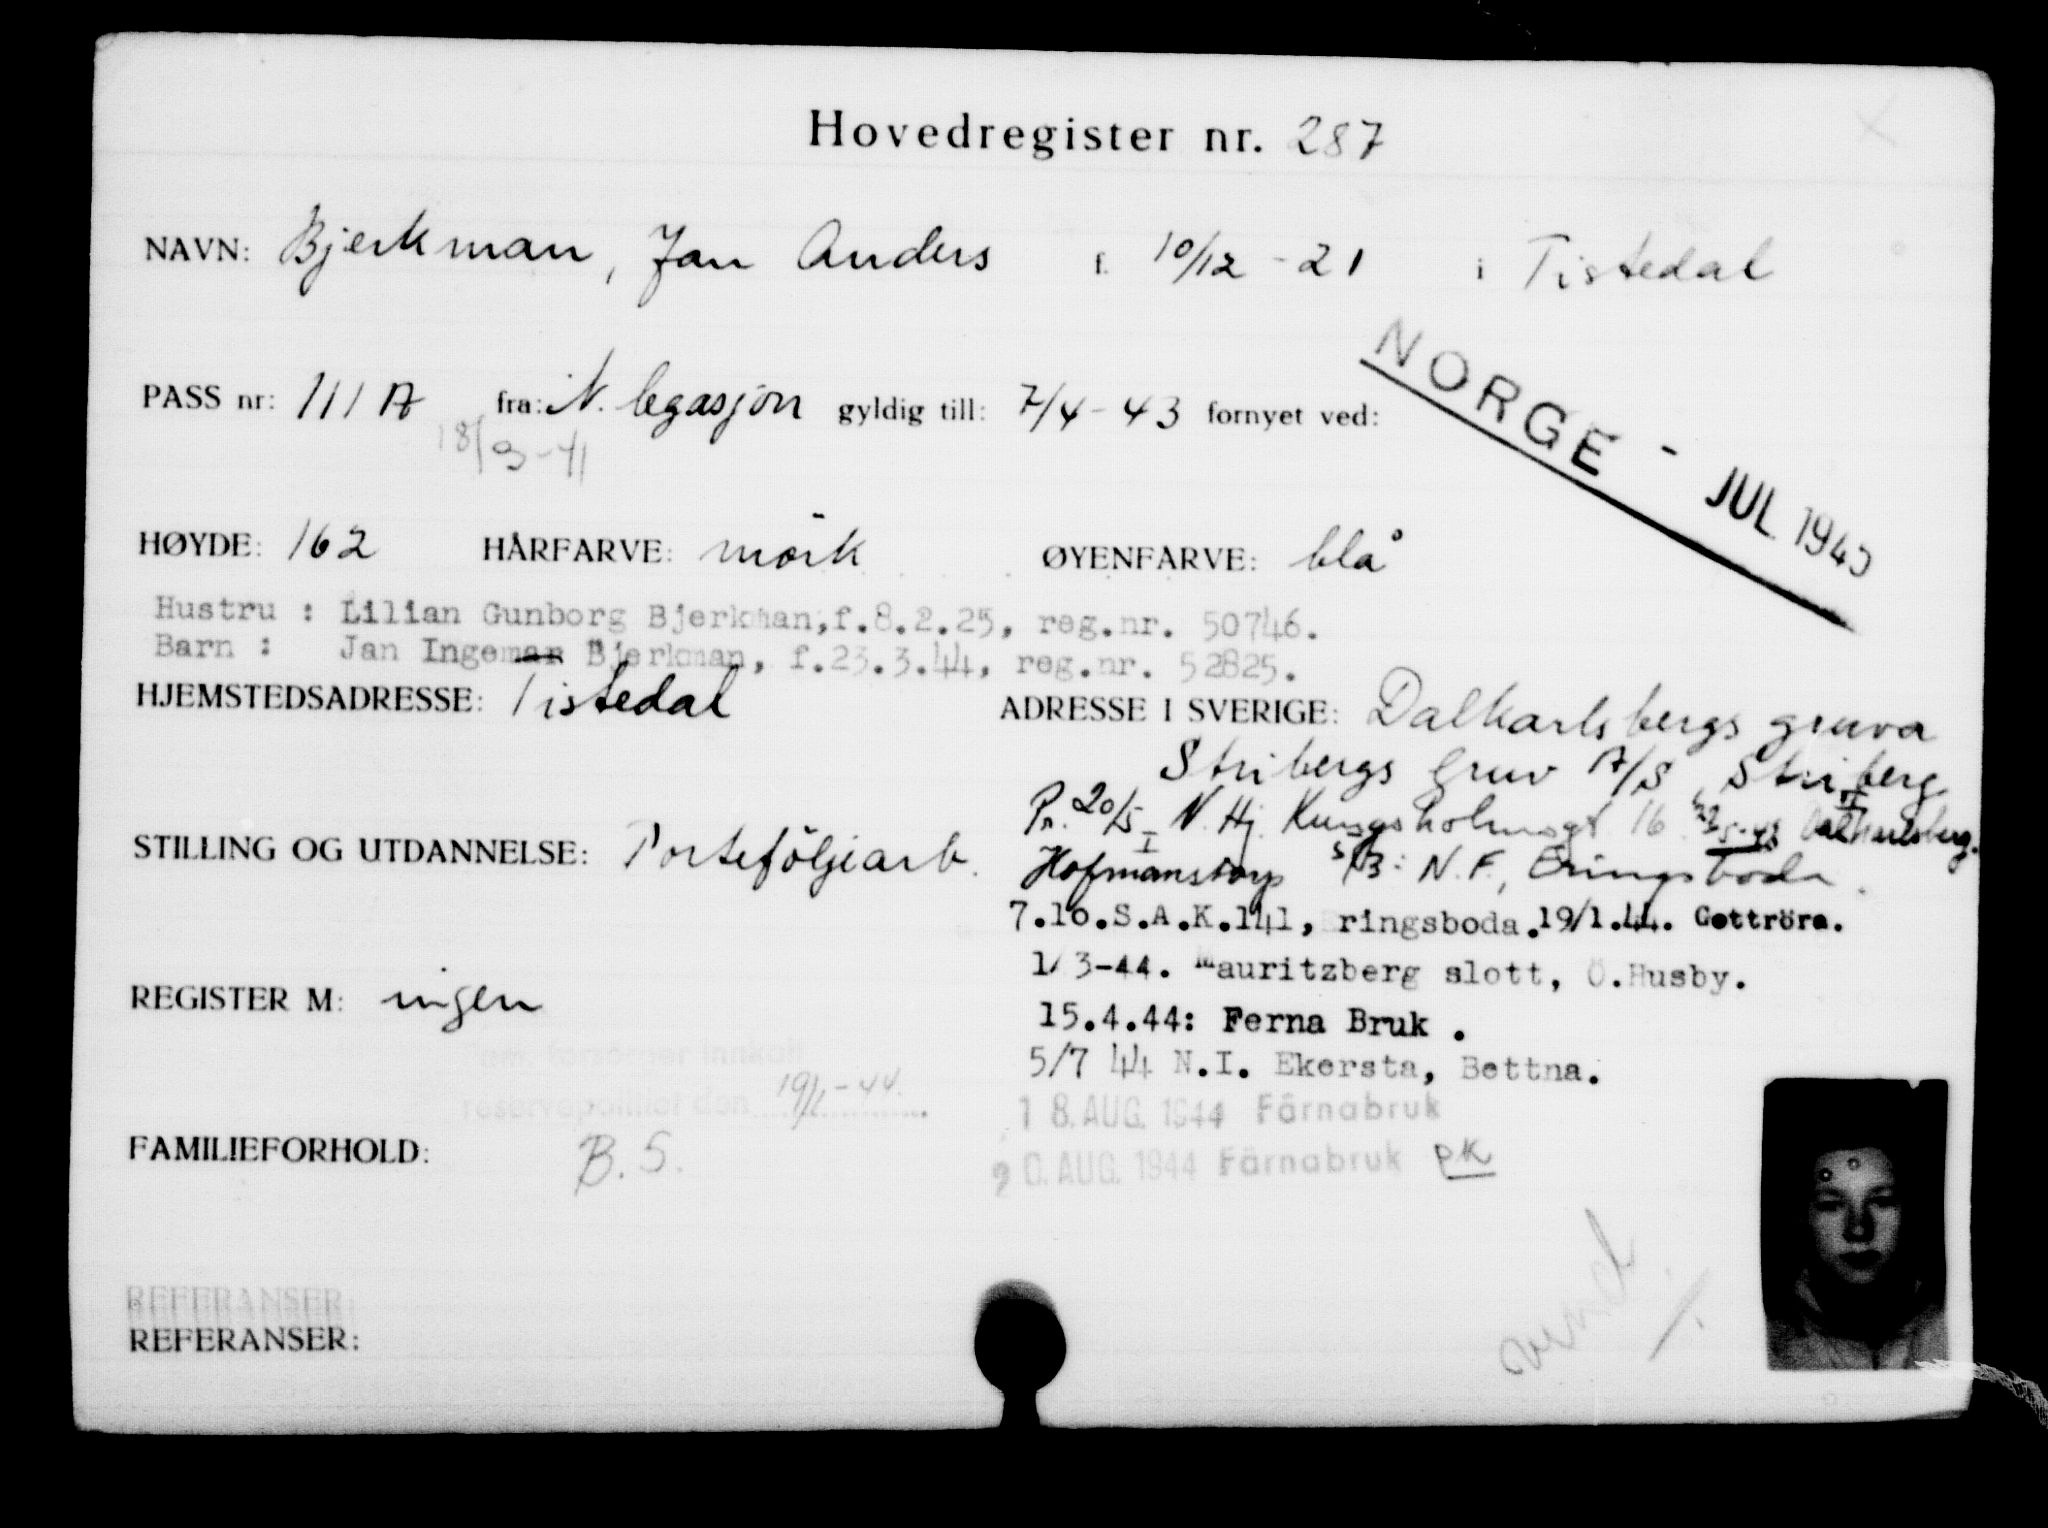 Hovedregister nr. 287
NAVN: Bjerkman, Jan Anders f. 10/12-21 i Tistedal
PASS nr: 111 A fra: N. legasjon gyldig till: 7/4-43 fornyet ved:
18/3-41
NORGE - JUL 1945
HØYDE: 162 HÅRFARVE: mörk ØYENFARVE: blå
Hustru : Lilian Gunborg Bjerkman, f.8.2.25, reg.nr. 50746.
Barn : Jan Ingemar Bjerkman, f.23.3.44, reg.nr. 52825.
HJEMSTEDSADRESSE: Tistedal
ADRESSE I SVERIGE: Dalkarlsbergs gruva
Stribergs Gruv A/S, Striberg
Pr. 20/5 N. Hj. Kungsholmsgt 16 Dalkarlsberg.
STILLING OG UTDANNELSE: Porteföljearb.
Hofmanstorp N.F., Eringsboda.
7.10.S.A.K.141, Eringsboda. 19/1.44. Gottröra.
1/3-44. Mauritzberg slott, Ö.Husby.
REGISTER M: ingen
15.4.44: Ferna Bruk .
5/7 44 N.I. Ekersta, Bettna.
innkalt
reservepolitiet den 19/1-44.
18. AUG. 1944 Färnabruk
FAMILIEFORHOLD: B.S.
20. AUG. 1944 Färnabruk PK
vend
REFERANSER
REFERANSER: